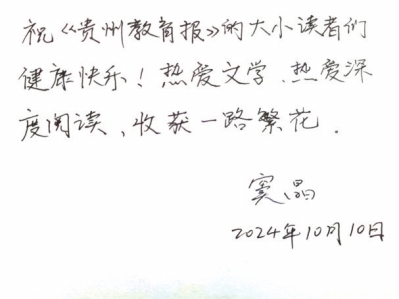 祝《贵州教育报》的大小读者们
健康快乐！热爱文学、热爱深
度阅读、收获一路繁花.
窦晶
2024年10月10日